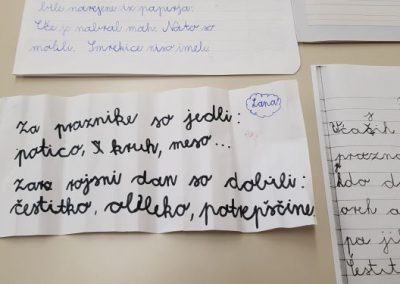 bile narejene iz papirja.
Oče je nabral mah. Nato so
molili. Smrekice niso imele
Žana
Za praznike so jedli:
potico, kruh, meso...
Za rojsni dan so dobili:
čestitko, obleko, potrepščine.
Včasih
prazno
do d
oreh a
pa ji
čestit